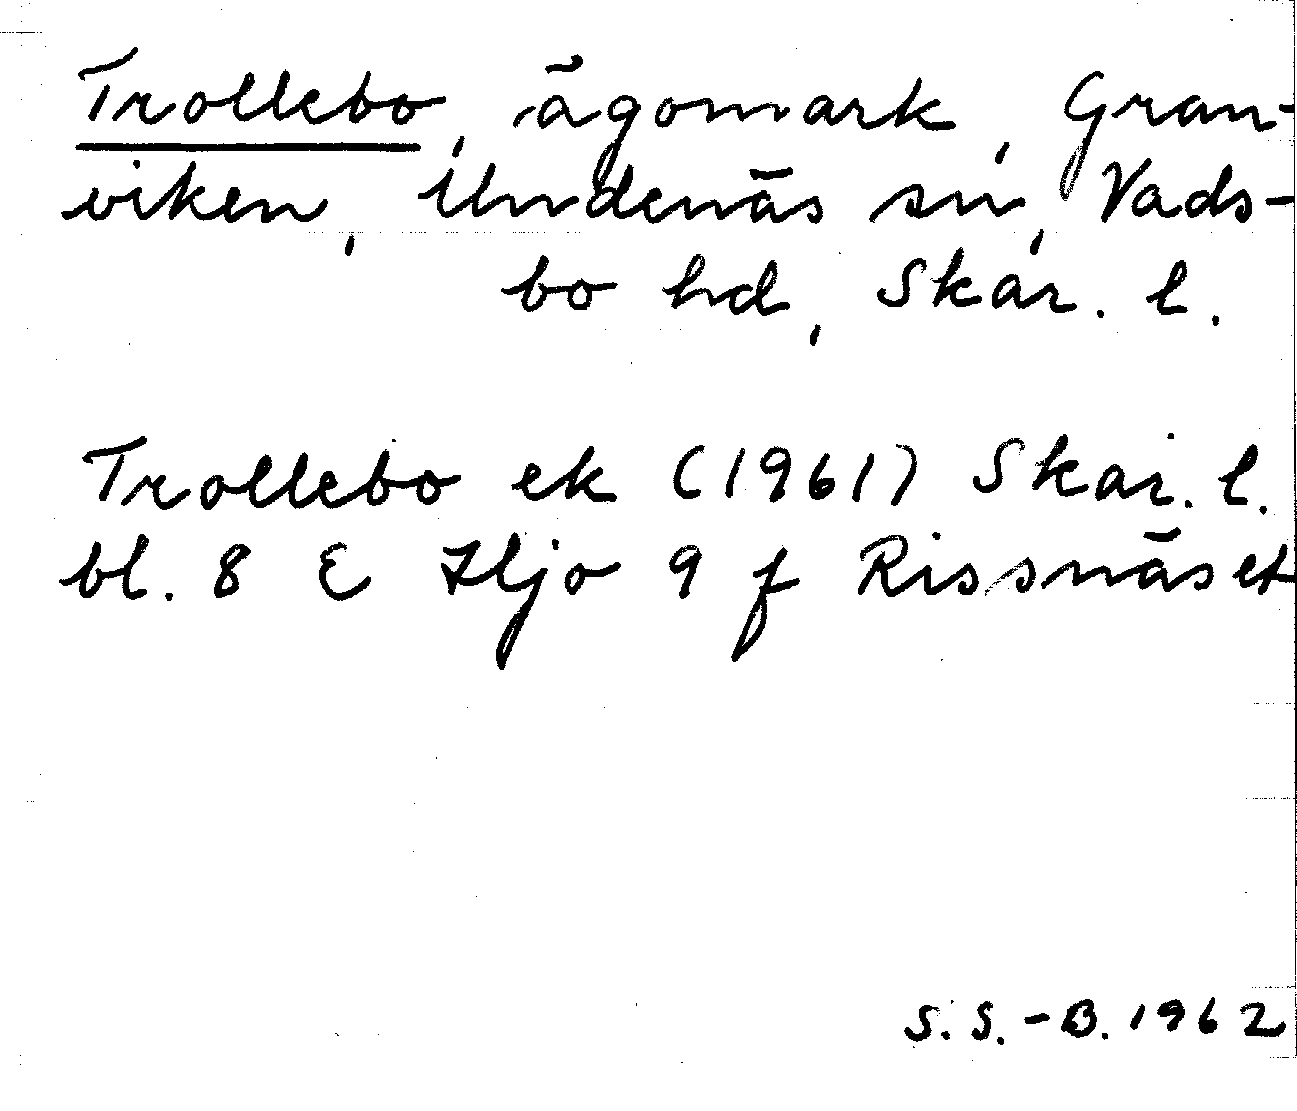 Trollebo, ägomark, Gran-
viken, Undenäs sn, Vads-
bo hd, Skar. l.
Trollebo ek (1961) Skar. l.
bl. 8 E Hjo 9 f Rissnäset
S.S.-B. 1962